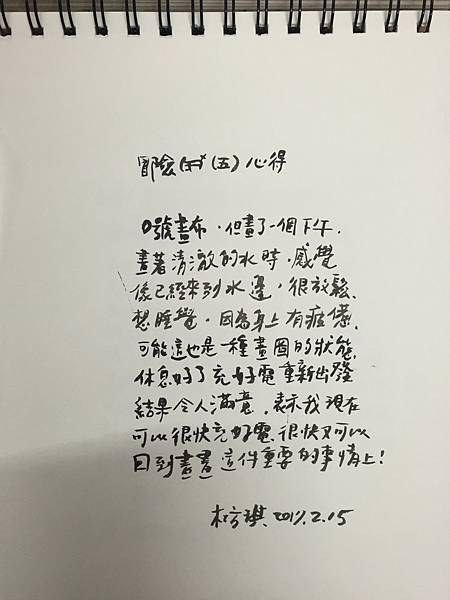 冒險(五)心得
0號畫布，但畫了一個下午.
畫著清澈的水時，感覺
像已經來到水邊，很放鬆.
想睡覺，因為身上有疲憊.
可能這也是一種畫圈的狀態.
休息好了充好電重新出發
結果令人滿意，表示我現在
可以很快充好電.很快又可以
回到畫畫這件重要的事情上!
2017.2.15